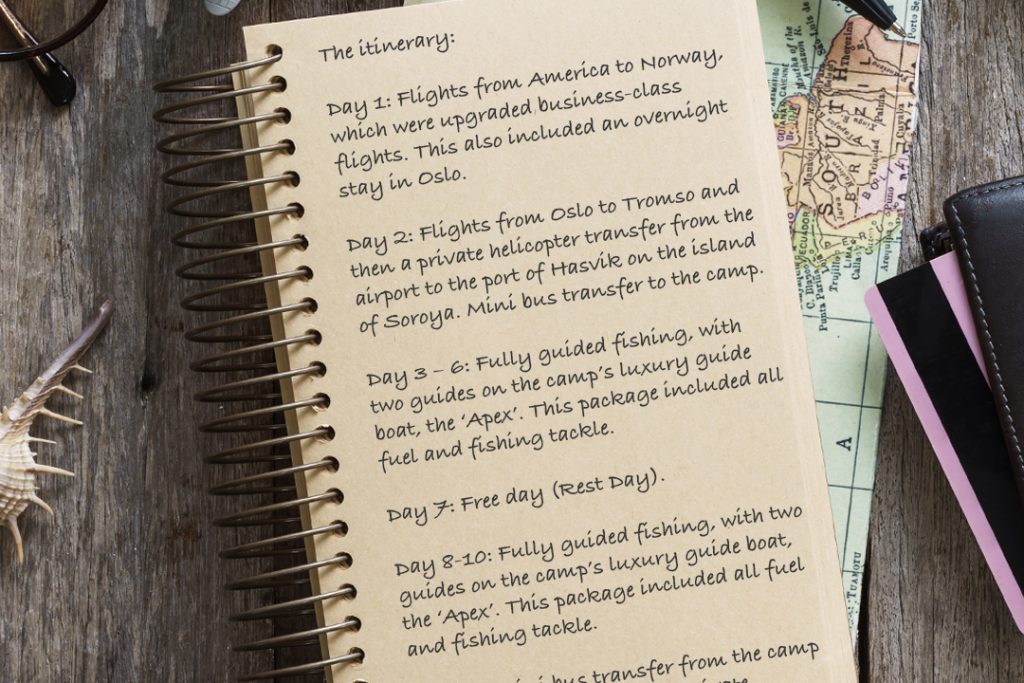 The itinerary:
Day 1: Flights from America to Norway,
which were upgraded business-class
flights. This also included an overnight
stay in Oslo.
Day 2: Flights from Oslo to Tromso and
then a private helicopter transfer from the
airport to the port of Hasvik on the island
of Soroya. Mini bus transfer to the camp.
Day 3 – 6: Fully guided fishing, with
two guides on the camp's luxury guide
boat, the 'Apex'. This package included all
fuel and fishing tackle.
Day 7: Free day (Rest Day).
Day 8-10: Fully guided fishing, with two
guides on the camp's luxury guide boat,
the 'Apex'. This package included all fuel
and fishing tackle.
bus transfer from the camp
SOUTH
BRAZIL
ECUADOR
A
TUAMOTU